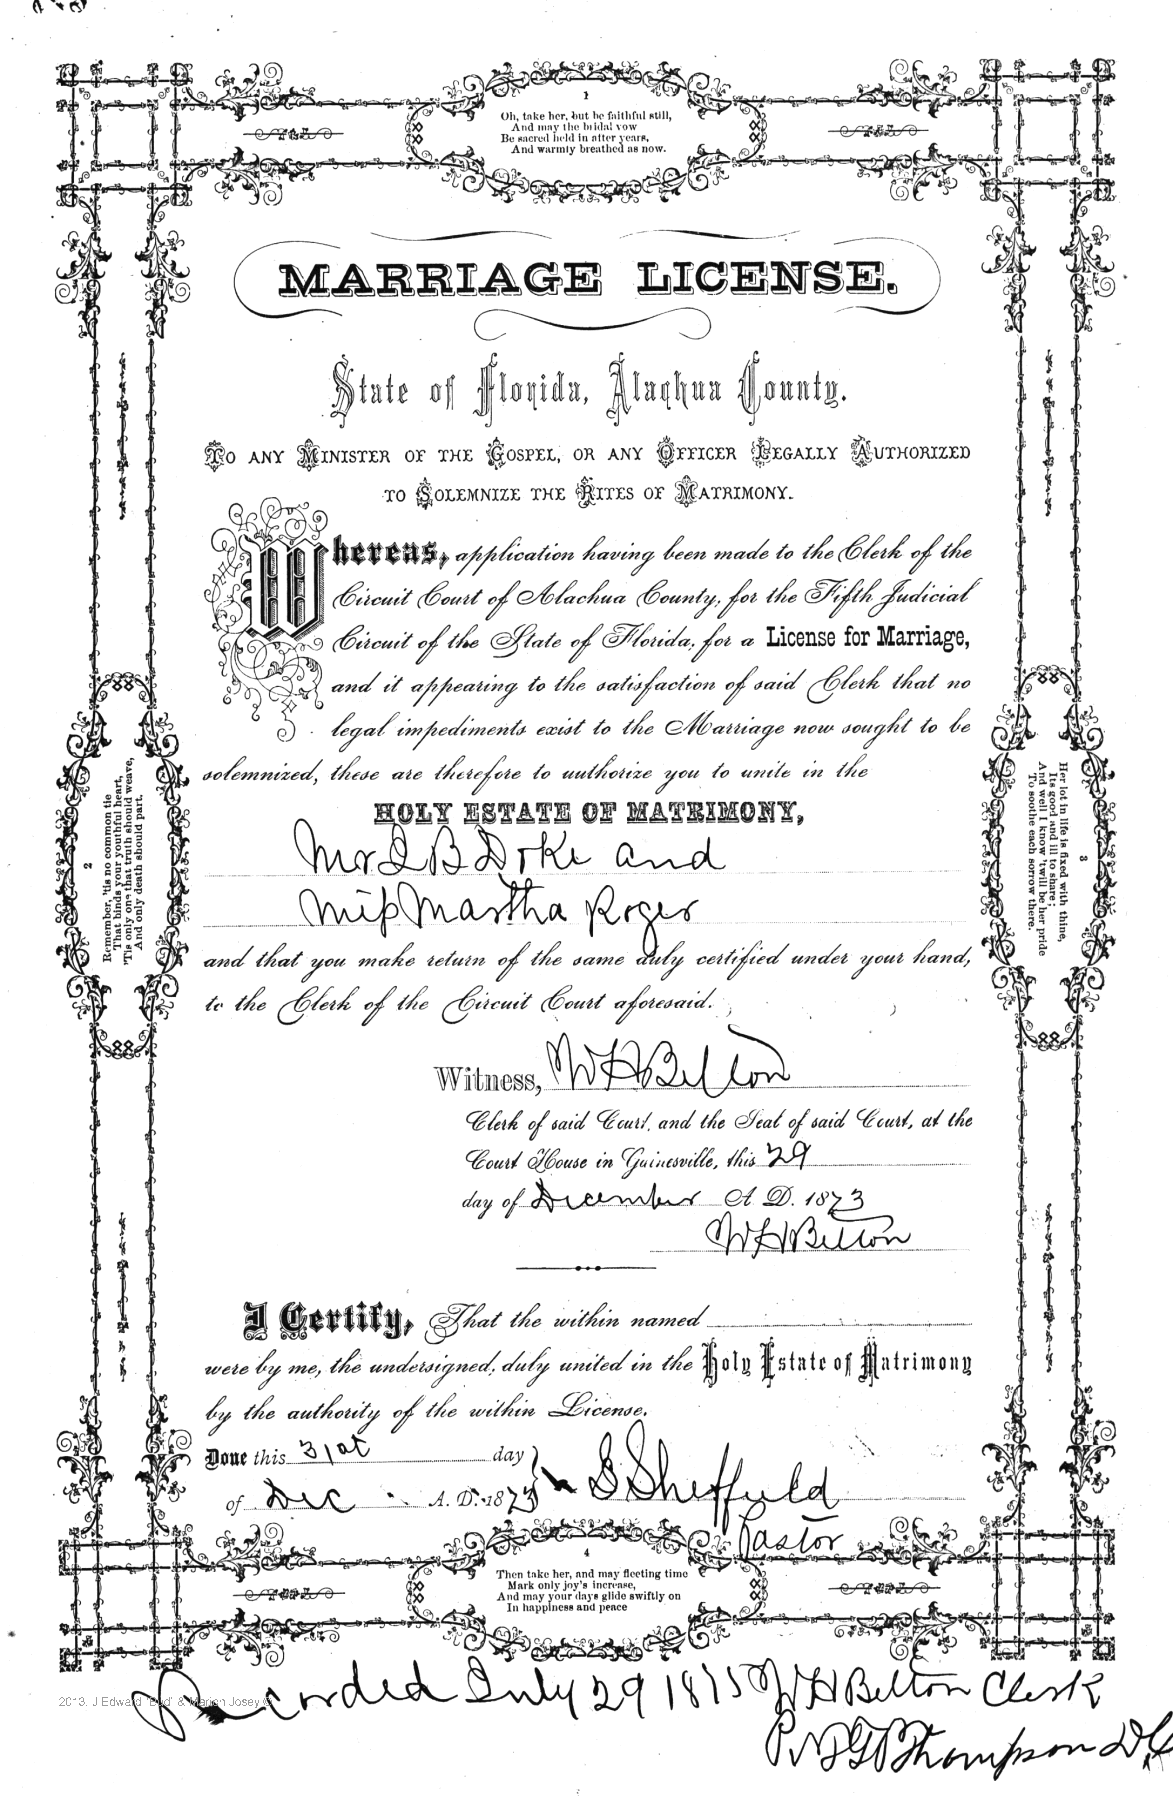 1
Oh, take her, but be faithful still,
And may the bridal vow
Be sacred held in after years,
And warmly breathed as now.
MARRIAGE LICENSE.
State of Florida, Alachua County.
TO ANY MINISTER OF THE GOSPEL, OR ANY OFFICER LEGALLY AUTHORIZED
TO SOLEMNIZE THE RITES OF MATRIMONY.
Whereas, application having been made to the Clerk of the
Circuit Court of Alachua County, for the Fifth Judicial
Circuit of the State of Florida, for a License for Marriage,
and it appearing to the satisfaction of said Clerk that no
legal impediments exist to the Marriage now sought to be
solemnized, these are therefore to authorize you to unite in the
HOLY ESTATE OF MATRIMONY,
Mr I B Doke and
Miss Martha Roger
and that you make return of the same duly certified under your hand,
to the Clerk of the Circuit Court aforesaid.
Witness, W H Belton
Clerk of said Court, and the Seal of said Court, at the
Court House in Gainesville, this 29
day of December A. D. 1873
W H Belton
I Certify, That the within named
were by me, the undersigned, duly united in the Holy Estate of Matrimony
by the authority of the within License.
Done this 31st day
of Dec A. D. 1873
S Sheffield
Pastor
2
Remember, 'tis no common tie
That binds your youthful heart,
'Tis only one that truth should weave,
And only death should part.
3
Her lot in life is fixed with thine,
Its good and ill to share;
And well I know 'twill be her pride
To soothe each sorrow there.
4
Then take her, and may fleeting time
Mark only joy's increase,
And may your days glide swiftly on
In happiness and peace
Recorded July 29 1875 W H Belton Clerk
Thompson DC
2013. J Edward 'Bud' & Marien Josey ©